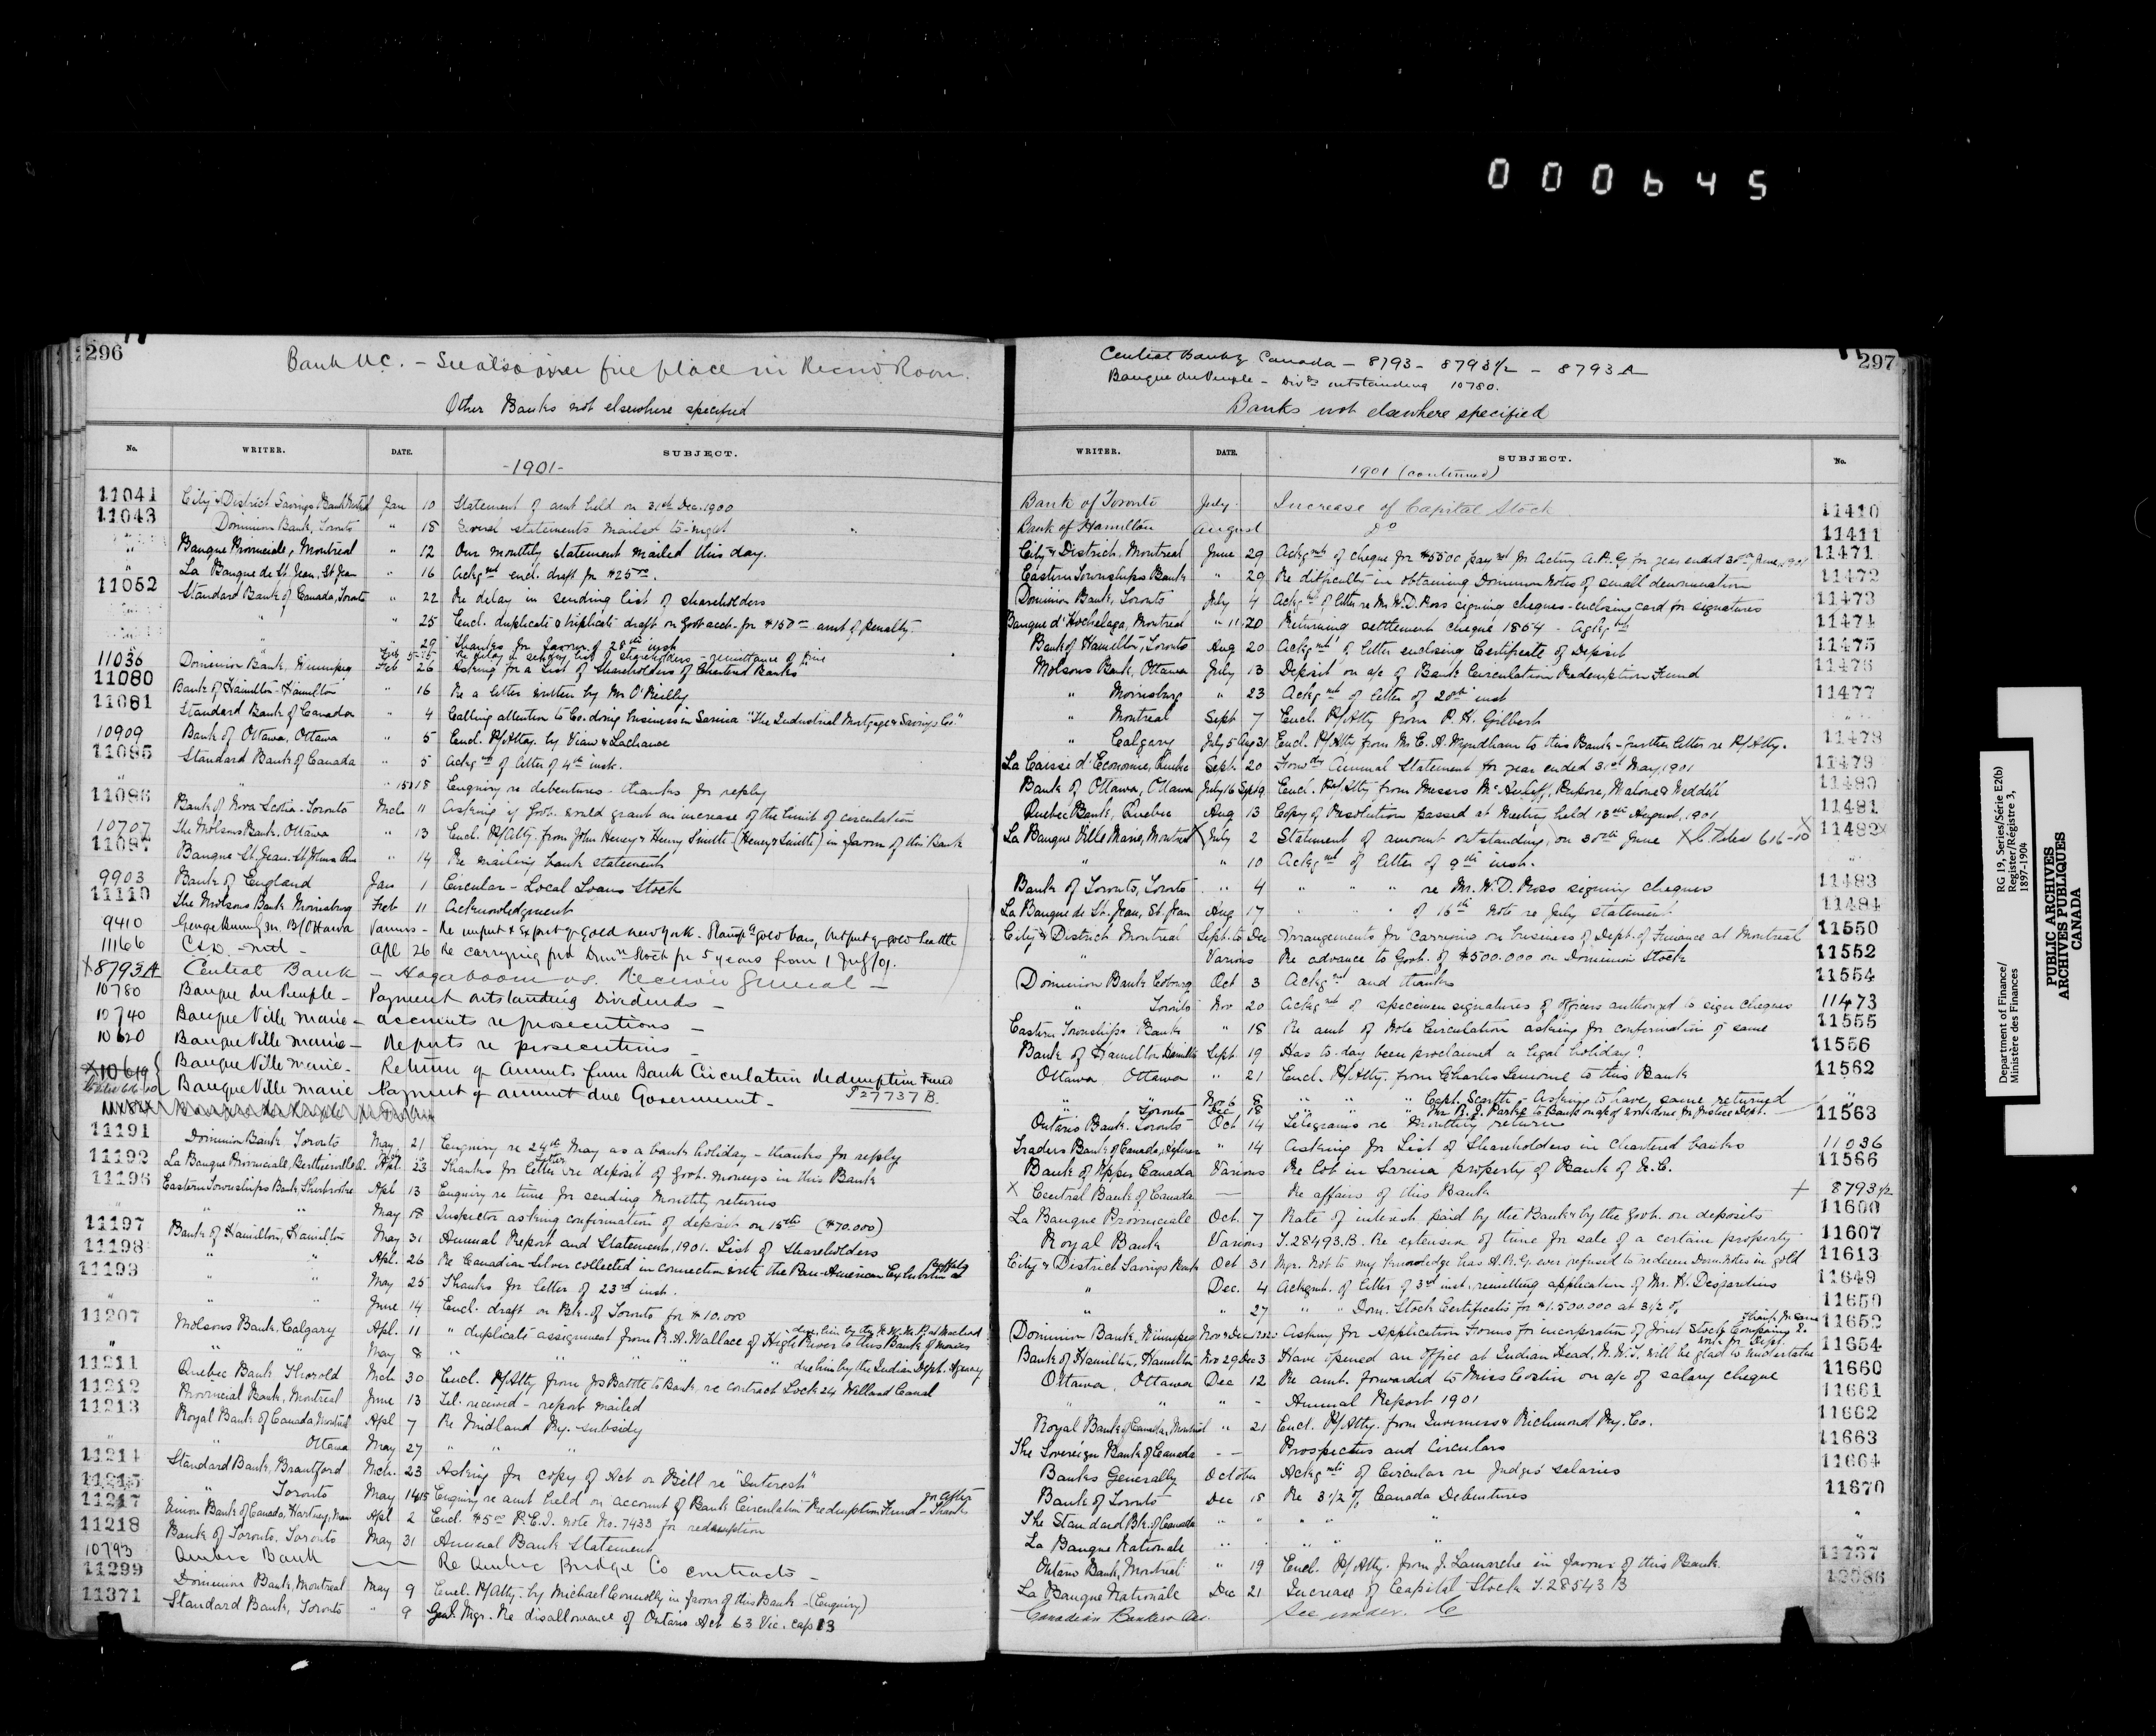 000645
296
Bank U.C. - See also over fire place in Record Room.
Other Banks not elsewhere specified
No. WRITER. DATE. SUBJECT.
-1901-
11041 City & District Savings Bank Montreal Jan 10 Statement of amt held on 31st Dec. 1900
11043 Dominion Bank, Toronto " 18 Several statements mailed to-night
" Banque Provinciale, Montreal " 12 Our monthly statement mailed this day.
" La Banque de St. Jean, St Jean " 16 Ackgmt encl. draft for $25.00.
11052 Standard Bank of Canada, Toronto " 22 Re delay in sending list of shareholders
" " 25 Encl. duplicate & triplicate draft on Govt acct. for $150.00 amt of penalty.
" " 29 Thanks for favor of 28th inst
Feb 5-15 Re delay in sending list of shareholders - remittance of fine
11036 Dominion Bank, Winnipeg Feb 26 Asking for a List of Shareholders of Chartered Banks
11080 Bank of Hamilton - Hamilton " 16 Re a letter written by Mr O'Reilly
11081 Standard Bank of Canada " 4 Calling attention to Co. doing business in Sarnia "The Industrial Mortgage & Savings Co."
10909 Bank of Ottawa, Ottawa " 5 Encl. P/Attoy. by Viau & Lachance
11085 Standard Bank of Canada " 5 Ackgmt of letter of 4th inst.
" " " 15&18 Enquiry re debentures - thanks for reply
11086 Bank of Nova Scotia - Toronto Mch 11 Asking if Govt. would grant an increase of the limit of circulation
10707 The Molsons Bank, Ottawa " 13 Encl. P/Atty. from John Heney & Henry Smith (Heney & Smith) in favor of this Bank
11087 Banque St. Jean, St Johns Que " 14 Re mailing bank statement
9903 Bank of England Jan 1 Circular - Local Loans Stock
11110 The Molsons Bank Morrisburg Feb 11 Acknowledgment
9410 George Burn G.M. B/Ottawa Various - Re import & Export of gold New York. Stamped gold bars, Output of gold Seattle
11166 C&D. - Mtl - Apl 26 Re carrying fwd Domn Stock for 5 years from 1 July/01.
X8793A Central Bank - Hagaboom vs. Receiver General -
10780 Banque du Peuple - Payment outstanding Dividends -
10740 Banque Ville Marie - accounts re prosecutions -
10620 Banque Ville Marie - Reports re prosecutions -
X10619 Banque Ville Marie - Return of Amnts from Bank Circulation Redemption Fund
Banque Ville Marie Payment of amount due Government - T27737B.
11191 Dominion Bank Toronto May 21 Enquiry re 24th May as a bank holiday - thanks for reply
11192 La Banque Provinciale, Berthierville Q. Apl. 23 Thanks for letter re deposit of Govt. moneys in this Bank
11196 Eastern Townships Bank, Sherbrooke Apl 13 Enquiry re time for sending monthly returns
" " " May 18 Inspector asking confirmation of deposit on 15th ($70.000)
11197 Bank of Hamilton, Hamilton May 31 Annual Report and Statements, 1901. List of Shareholders
11198 " " Apl. 26 Re Canadian Silver collected in connection with the Pan-American Exhibition at Buffalo
11199 " " May 25 Thanks for letter of 23rd inst.
" " " June 14 Encl. draft on Bk. of Toronto for $10.000
11207 Molsons Bank, Calgary Apl. 11 " duplicate assignment from R. A. Wallace of High River to this Bank of monies due him by the N.W.M.P. at Macleod
" " " May 8 " " " " " due him by the Indian Dept. Agency
11211 Quebec Bank Thorold Mch 30 Encl. P/Atty from Jos Battle to Bank, re contract Lock 24 Welland Canal
11212 Provincial Bank, Montreal June 13 Tel. received - report mailed
11213 Royal Bank of Canada, Montreal Apl 7 Re Midland Ry. subsidy
" " Ottawa May 27 " " "
11214 Standard Bank, Brantford Mch. 23 Asking for copy of Act or Bill re "Interest"
11215 " Toronto May 14&15 Enquiry re amt held on account of Bank Circulation Redemption Fund - Thanks
11217 Union Bank of Canada, Hartney, Man Apl 2 Encl. $5.00 P.E.I. note No. 7433 for redemption
11218 Bank of Toronto, Toronto May 31 Annual Bank Statement
10793 Quebec Bank —— Re Quebec Bridge Co contracts -
11299 Dominion Bank, Montreal May 9 Encl. P/Atty. by Michael Connolly in favor of this Bank - (Enquiry)
11371 Standard Bank, Toronto " 9 Genl. Mgr. Re disallowance of Ontario Act 63 Vic. Cap 13
297
Central Bank of Canada - 8793 - 8793 1/2 - 8793A
Banque du Peuple - Divds outstanding 10780.
Banks not elsewhere specified
WRITER. DATE. SUBJECT. No.
1901 (continued)
Bank of Toronto July Increase of Capital Stock 11410
Bank of Hamilton August do 11411
City & District, Montreal June 29 Ackgmt of cheque for $5500 paymt for Acting A.R.G. for year ended 30th June, 1901 11471
Eastern Townships Bank " 29 Re difficulty in obtaining Dominion Notes of small denomination 11472
Dominion Bank, Toronto July 4 Ackgmt of letter re Mr. W. D. Ross signing cheques - enclosing card for signatures 11473
Banque d'Hochelaga, Montreal " 11.20 Returning settlement cheque 1854 - Ackgmt 11474
Bank of Hamilton, Toronto Aug 20 Ackgmt of letter enclosing Certificate of Deposit 11475
Molsons Bank, Ottawa July 13 Deposit on a/c of Bank Circulation Redemption Fund 11476
" Morrisburg " 23 Ackgmt of letter of 20th inst 11477
" Montreal Sept 7 Encl. P/Atty from P. H. Gilbert "
" Calgary July 5 Aug 31 Encl. P/Atty from Mr C. A. Wyndham to this Bank - further letter re P/Atty. 11478
La Caisse d'Economie, Quebec Sept. 20 Forwdg Annual Statement for year ended 31st May, 1901 11479
Bank of Ottawa, Ottawa July 16 Sept 9 Encl. P/Atty from Messrs McAuliff, Malone & Weddell 11480
Quebec Bank, Quebec Aug 13 Copy of Resolution passed at Meeting held 13th August, 1901 11481
La Banque Ville Marie, Montreal X July 2 Statement of amount outstanding, on 30th June 616-10 X 11482X
" 10 Ackgmt of letter of 9th inst. "
Bank of Toronto, Toronto " 4 " " " re Mr. W. D. Ross signing cheques 11483
La Banque de St. Jean, St. Jean Aug 17 " " " of 16th note re July statement 11484
City & District Montreal Sept. to Dec Arrangements for carrying on business of Dept. of Finance at Montreal 11550
" Various Re advance to Govt. of $500.000 on Dominion Stock 11552
Dominion Bank Cobourg Oct 3 Ackgmt and thanks 11554
" Toronto Nov 20 Ackgmt of specimen signatures of officers authorized to sign cheques 11473
Eastern Townships Bank " 18 Re amt of Note Circulation asking for confirmation of same 11555
Bank of Hamilton Hamilton Sept. 19 Has to-day been proclaimed a legal holiday? 11556
Ottawa, Ottawa " 21 Encl. P/Atty. from Charles Lemoine to this Bank 11562
" " Nov 6 8 " " " " Capt. Scarth - Asking to have same returned "
" Toronto Dec 18 " " " " Mr R. J. Parke to Bank on a/c of work done for Justice Dept.
Ontario Bank, Toronto Oct 14 Telegrams re Monthly return 11563
Traders Bank of Canada " 14 Asking for List of Shareholders in Chartered banks 11036
Bank of Upper Canada Various Re lot in Sarnia property of Bank of U.C. 11566
X Central Bank of Canada —— Re affairs of this Bank X 8793 1/2
La Banque Provinciale Oct. 7 Rate of interest paid by the Bank & by the Govt. on deposits 11600
Royal Bank Various T.28493.B. Re extension of time for sale of a certain property 11607
City & District Savings Bank Oct 31 Mgr. Not to my knowledge has A.R.G. ever refused to redeem Dom. Notes in gold 11613
" Dec. 4 Ackgmt. of letter of 3rd inst. remitting application of Mr. H. Desjardins 11649
" " 27 " " Dom. Stock Certificate for $1.500.000 at 3 1/2 % 11650
Dominion Bank, Winnipeg Nov & Dec Asking for Application Forms for incorporation of Joint Stock Companies 11652
Bank of Hamilton, Hamilton Nov 29 Dec 3 Have opened an Office at Indian Head, N.W.T. will be glad to undertake work for Dept. 11654
Ottawa, Ottawa Dec 12 Re amt. forwarded to Miss Costin on a/c of salary cheque 11660
" " " - Annual Report 1901 11661
Royal Bank of Canada, Montreal " 21 Encl. P/Atty. from Inverness & Richmond Ry. Co. 11662
The Sovereign Bank of Canada - - Prospectus and Circulars 11663
Banks Generally October Ackgmts of Circular re Judges' salaries 11664
Bank of Toronto Dec 18 Re 3 1/2 % Canada Debentures 11670
The Standard Bk. of Canada " " " " " "
La Banque Nationale " " " " "
Ontario Bank, Montreal " 19 Encl. P/Atty. from J. Lamarche in favour of this Bank. 11737
La Banque Nationale Dec 21 Increase of Capital Stock T.28543B 12086
Canadian Bankers Ass. See under. C
Department of Finance/
Ministère des Finances
RG 19, Series/Série E2(b)
Register/Régistre 3,
1897-1904
PUBLIC ARCHIVES
ARCHIVES PUBLIQUES
CANADA